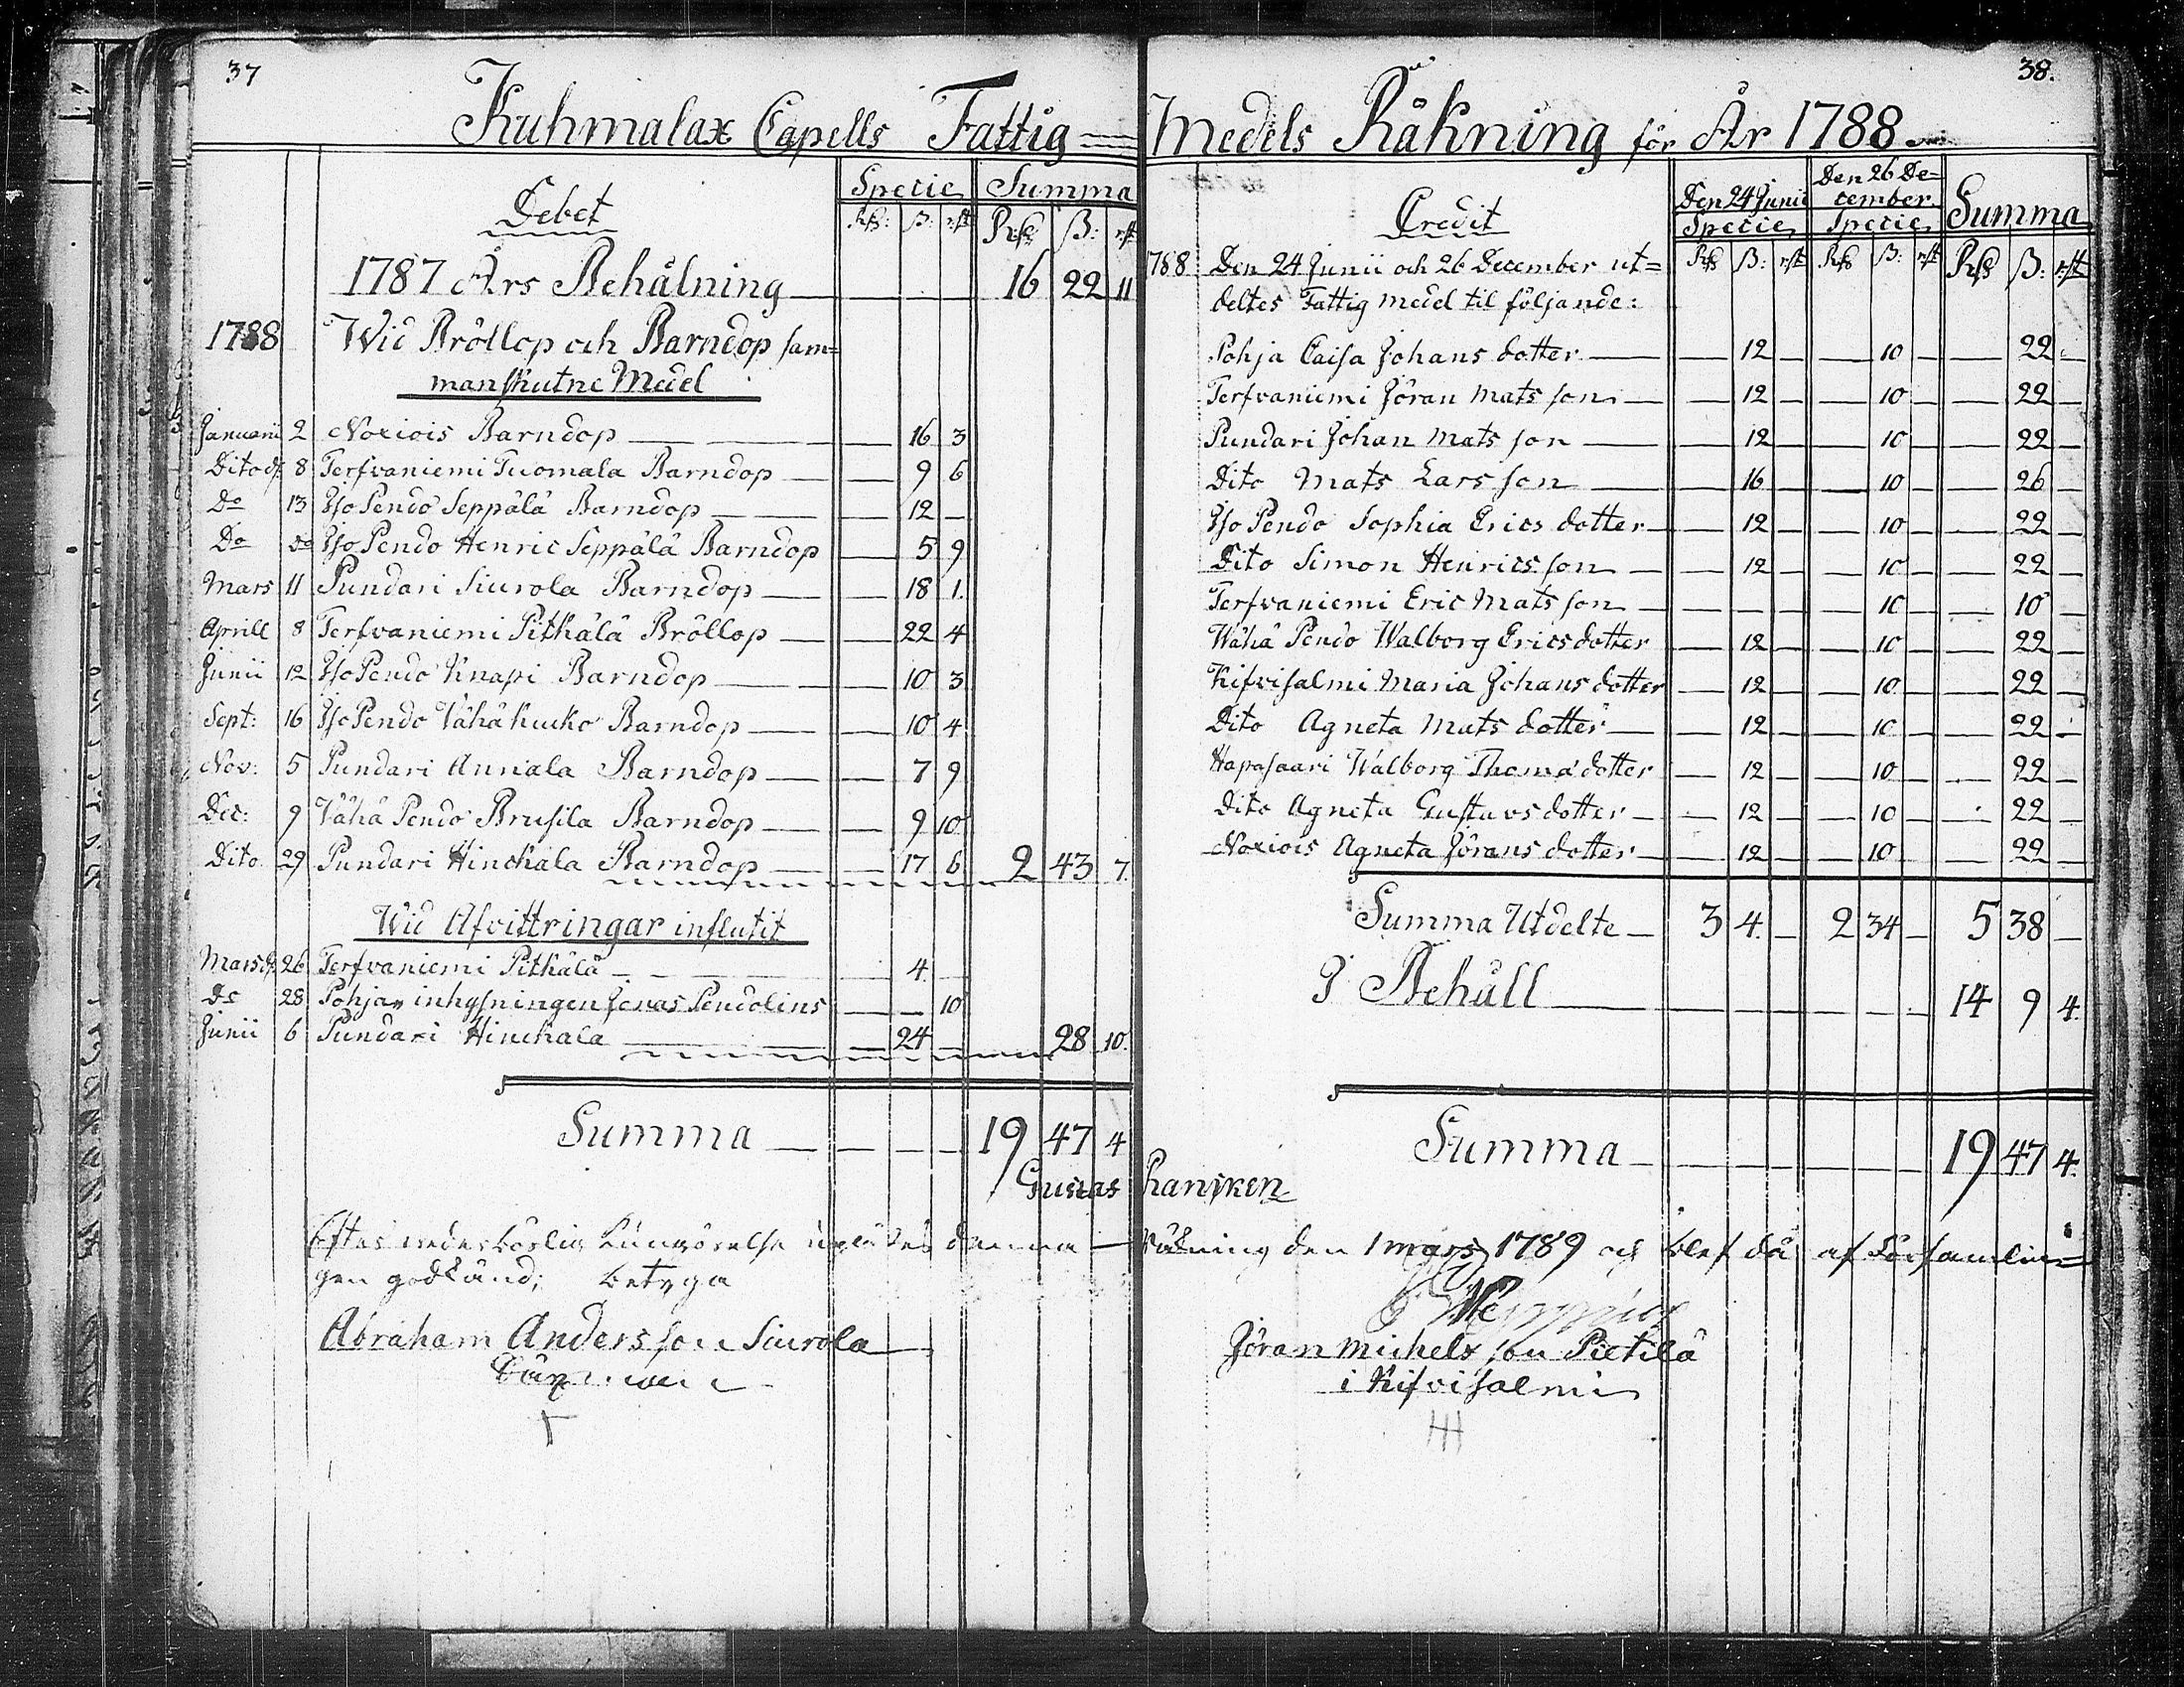 37
Kuhmalax Capells Fattig=
Debet
Specie Summa
Rß: ß: rst Rß ß: rst
1787 Års Behålning 16 22 11
1788 Wid Bröllop och Barndop sam=
manskutne Medel
Januarii 2 Noxiois Barndop — 16 3
Dito d. 8 Terfvaniemi Tuomala Barndop — 9 6
Do 13 Iso Pendo Seppälä Barndop — 12 —
Do do Iso Pendo Henric Seppälä Barndop — 5 9
Mars 11 Pundari Siurola Barndop — 18 1.
Aprill 8 Terfvaniemi Pithälä Bröllop — 22 4
Junii 12 Iso Pendo Knapi Barndop — 10 3
Sept: 16 Iso Pendo Vähä huko Barndop — 10 4
Nov: 5 Pundari Annala Barndop — 7 9
Dec: 9 Vähä Pendo Brusila Barndop — 9 10
Dito 29 Pundari Hinckala Barndop — 17 6 2 43 7.
Wid Afvittringar influtit
Mars d. 26 Terfvaniemi Pithälä — 4 —
Do 28 Pohjan inhysningen Jonas Pendolins — — 10
Junii 6 Pundari Hinckala — 24 — 28 10.
Summa — 19 47 4
38.
Medels Räkning för År 1788
Credit
Den 24 Junii Specie
Den 26 De=
cember. Specie
Summa
Rß ß: rst Rß ß: rst Rß ß: rst
1788 Den 24 Junii och 26 December ut=
deltes Fattig medel til följande:
Pohja Caisa Johans dotter — 12 — — 10 — — 22 —
Terfvaniemi Jöran Mats son — 12 — — 10 — — 22 —
Pundari Johan Mats son — 12 — — 10 — — 22 —
Dito Mats Lars son — 16 — — 10 — — 26 —
Iso Pendo Sophia Erics dotter — 12 — — 10 — — 22 —
Dito Simon Henrics son — 12 — — 10 — — 22 —
Terfvaniemi Eric Mats son — — — — 10 — — 10 —
Wähä Pendo Walborg Ericsdotter — 12 — — 10 — — 22 —
Kifvisalmi Maria Johans dotter — 12 — — 10 — — 22 —
Dito Agneta Mats dotter — 12 — — 10 — — 22 —
Hapasaari Walborg Thomä dotter — 12 — — 10 — — 22 —
Dito Agneta Gustavs dotter — 12 — — 10 — — 22 —
Noxiois Agneta Jörans dotter — 12 — — 10 — — 22 —
Summa Utdelte — 3 4. — 2 34 — 5 38 —
I Behåll — 14 9 4.
Summa — 19 47 4.
Gustas
Efter wederbörlig kungörelse uplästes denna Räkning den 1 mars 1789 och blef då af Församlin=
gen godkänd; betyga
Abraham Andersson Siurola
Jöran Michels son Pietilä
i Kifvisalmi